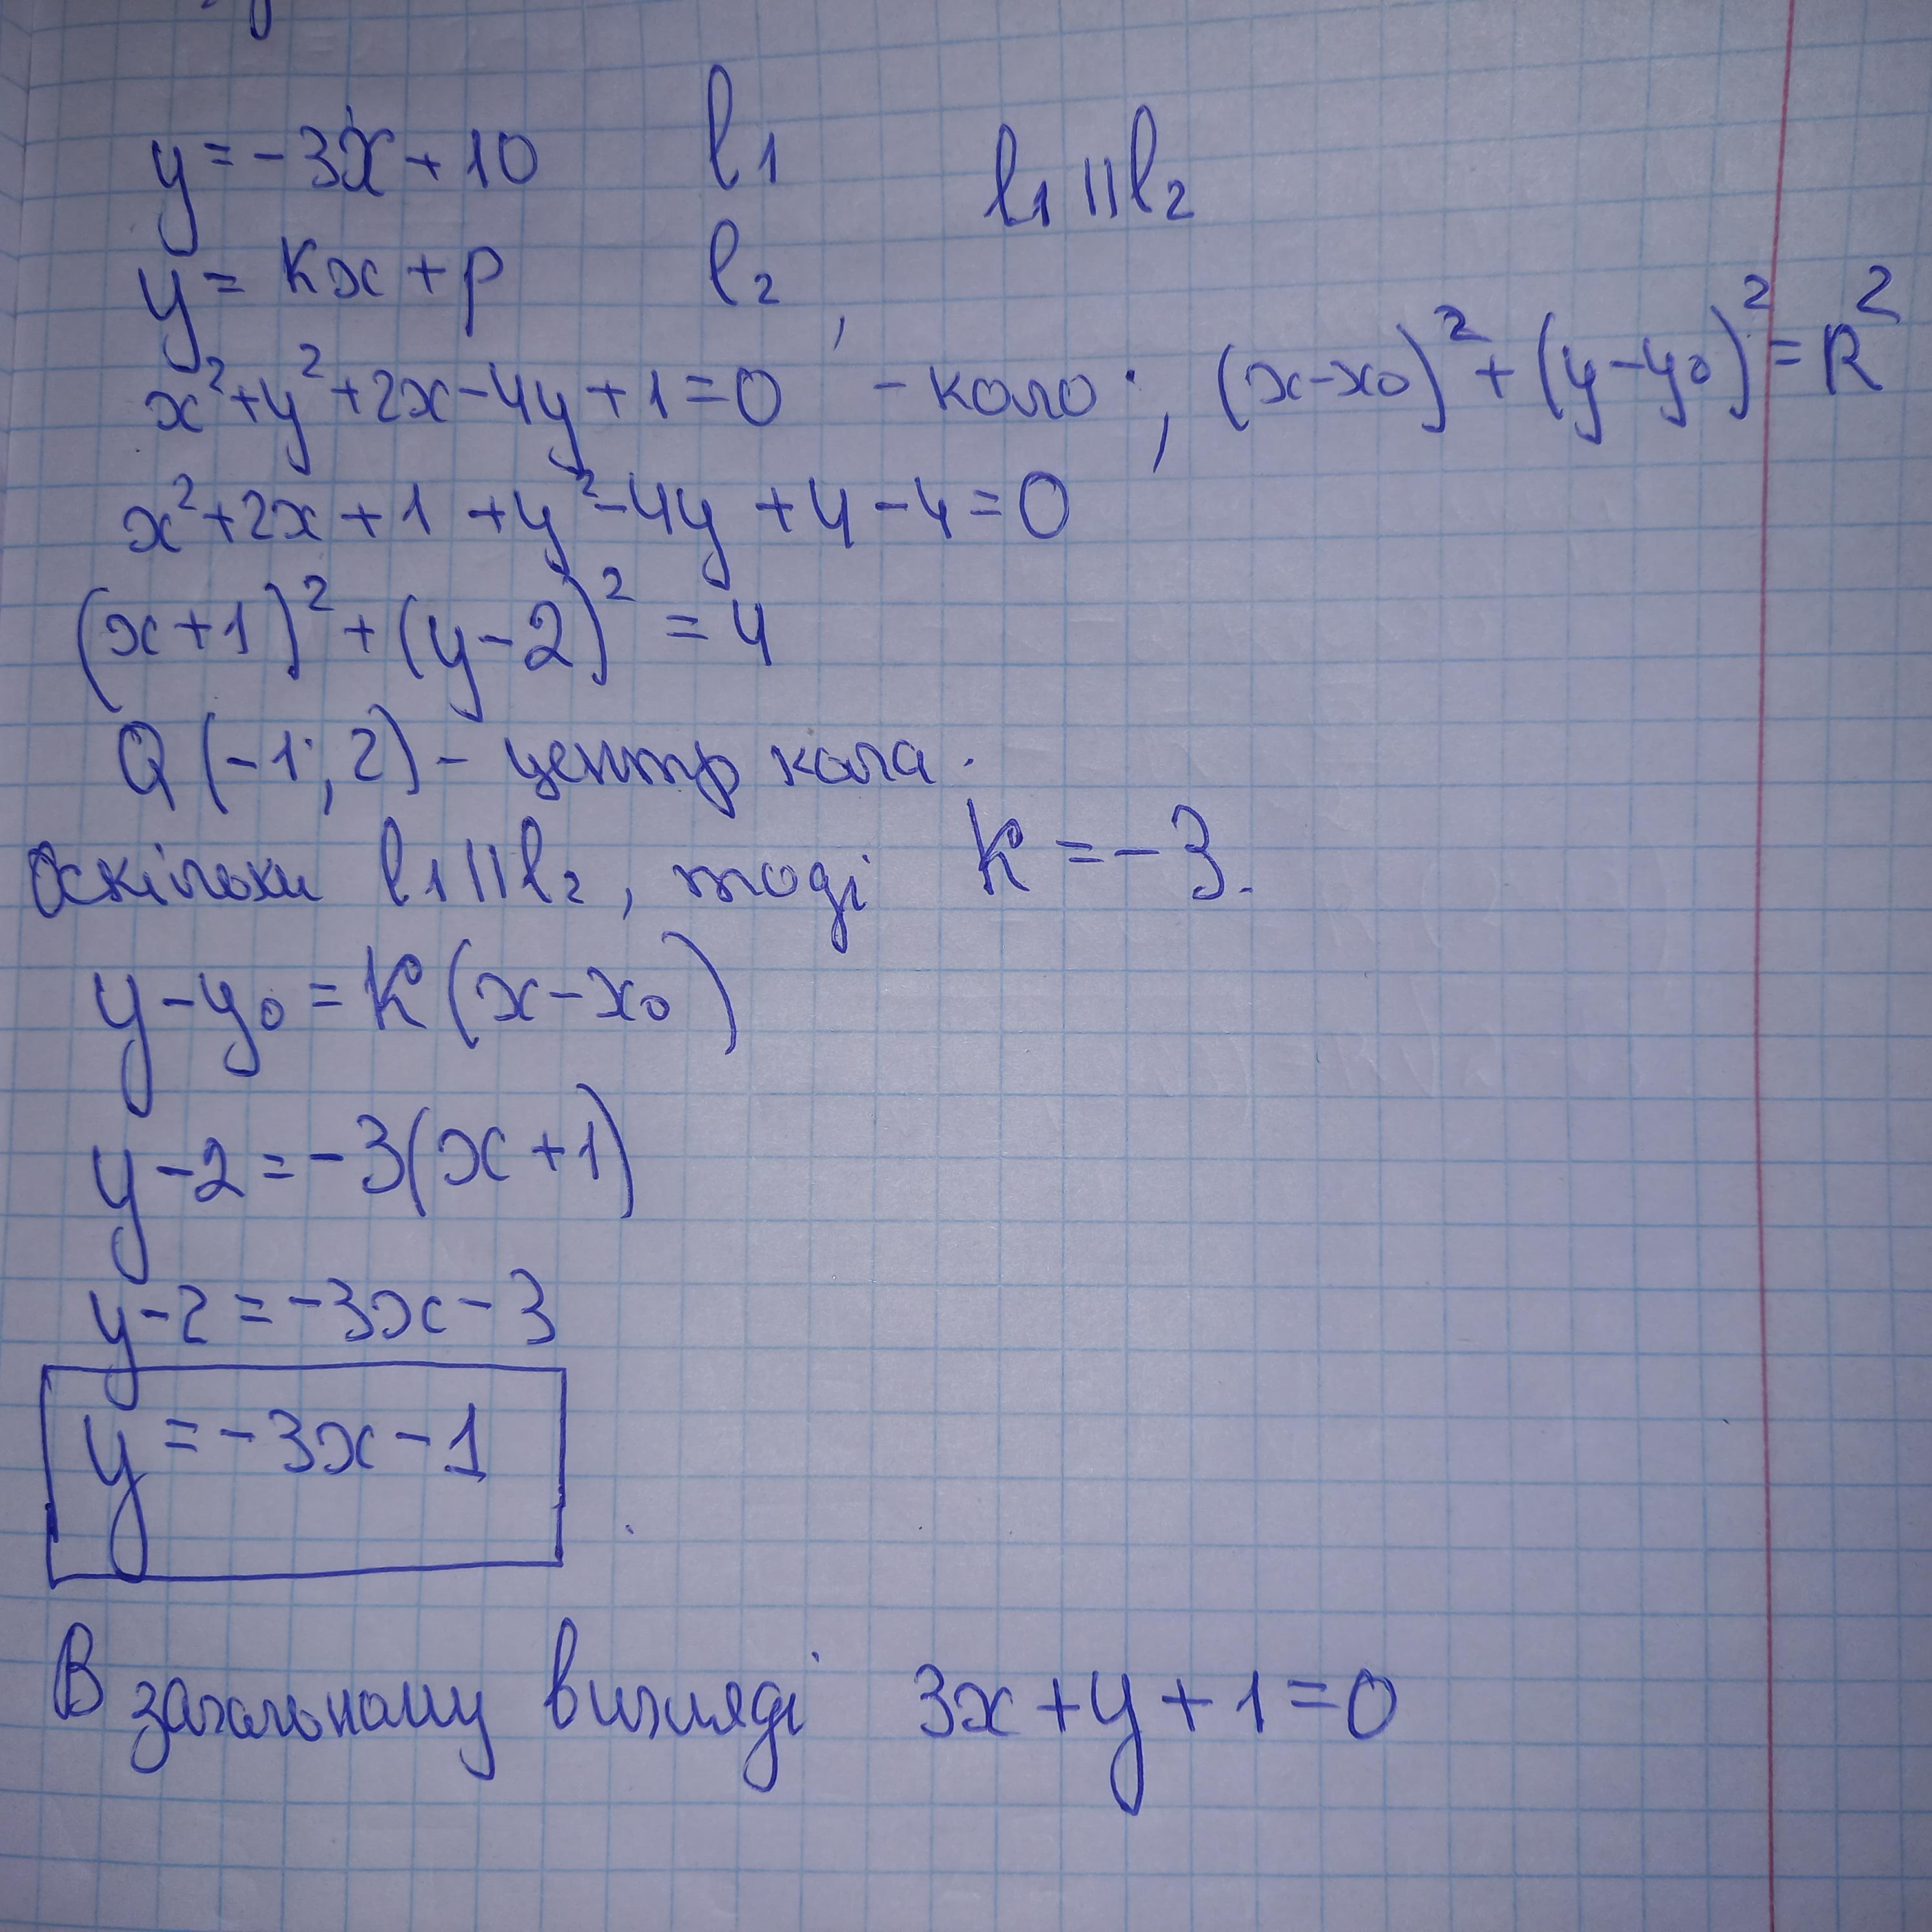 y = -3x + 10 l1 l1 || l2
y = kx + p l2 ,
x² + y² + 2x - 4y + 1 = 0 - коло ; (x - x0)² + (y - y0)² = R²
x² + 2x + 1 + y² - 4y + 4 - 4 = 0
(x + 1)² + (y - 2)² = 4
Q (-1; 2) - центр кола.
Оскільки l1 || l2, тоді k = -3.
y - y0 = k(x - x0)
y - 2 = -3(x + 1)
y - 2 = -3x - 3
y = -3x - 1
В загальному вигляді 3x + y + 1 = 0